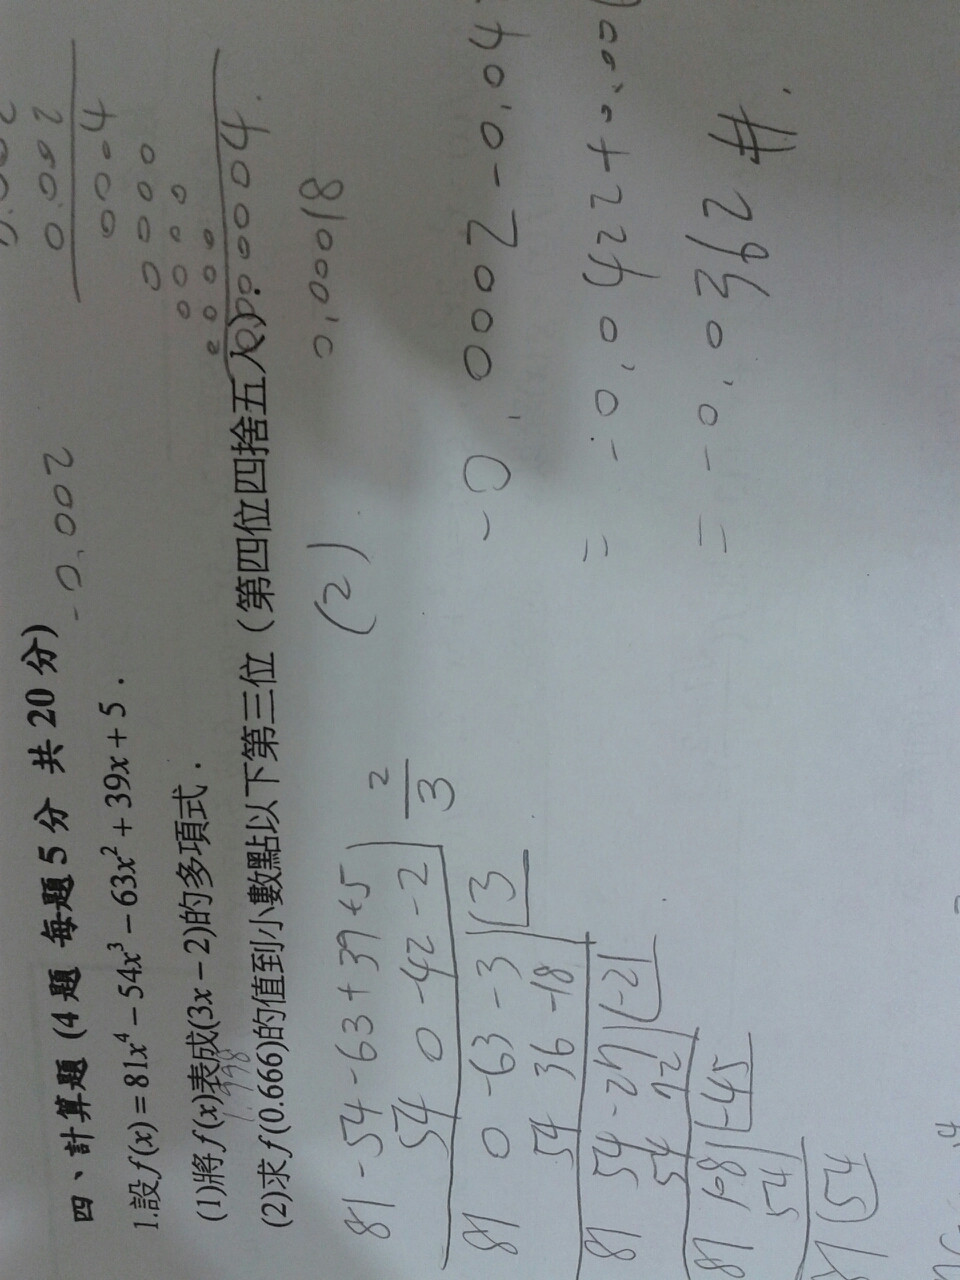 四、計算題 (4 題 每題 5 分 共 20 分)
1.設f(x) = 81x⁴ − 54x³ − 63x² + 39x + 5．
(1)將f(x)表成(3x − 2)的多項式．
(2)求f(0.666)的值到小數點以下第三位（第四位四捨五入）．
-0.002
0.002
0.002
0004
0000
000
0000
0.000004
1.998
81 -54 -63 +39 +5 | 2/3
54 0 -42 -2
81 0 -63 -3 | 3
54 36 -18
81 54 -27 | -21
54 72
81 108 | -45
54
81 | 54
(2)
0.00018
-0.0002-0.04
= -0.0422+0.00
= -0.0362 #.